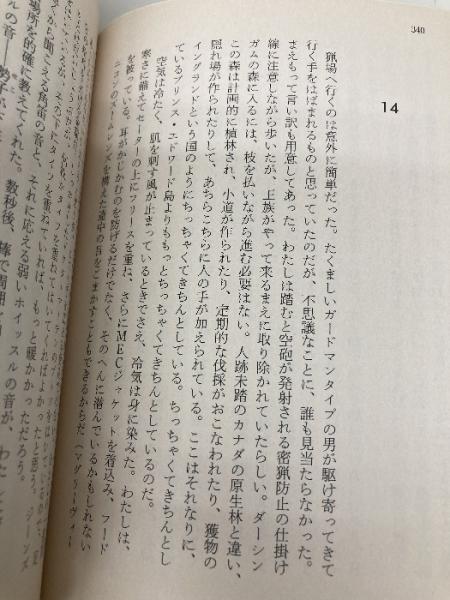 340
14
猟場へ行くのは意外に簡単だった。たくましいガードマンタイプの男が駆け寄ってきて
行く手をはばまれるものと思っていたのだが、不思議なことに、誰も見当たらなかった。
まえもって言い訳も用意してあった。わたしは踏むと空砲が発射される密猟防止の仕掛け
線に注意しながら歩いたが、王族がやって来るまえに取り除かれていたらしい。ダーシン
ガムの森に入るには、枝を払いながら進む必要はない。人跡未踏のカナダの原生林と違い、
この森は計画的に植林され、小道が作られたり、定期的な伐採がおこなわれたり、獲物の
隠れ場が作られたりして、あちらこちらに人の手が加えられている。ここはそれなりに、
イングランドという国のようにちっちゃくてきちんとしている。ちっちゃくてきちんとし
ているプリンス・エドワード島よりももっとちっちゃくてきちんとしているのだ。
空気は冷たく、肌を刺す風が止まっているときでさえ、冷気は身に染みた。わたしは、
寒さに備えてセーターの上にフリースを重ね、さらにMECジャケットを着込み、フード
を被っている。耳がかじかむのを防げるだけでなく、そのへんに潜んでいるかもしれない
ニコンのズームレンズを構えた連中の目をごまかすこともできるからだ
もっと暖かかっただろう。
聞こえる角笛の音と、それに応える弱いホイッスルの音が、
場所を的確に教えてくれた。数秒後、